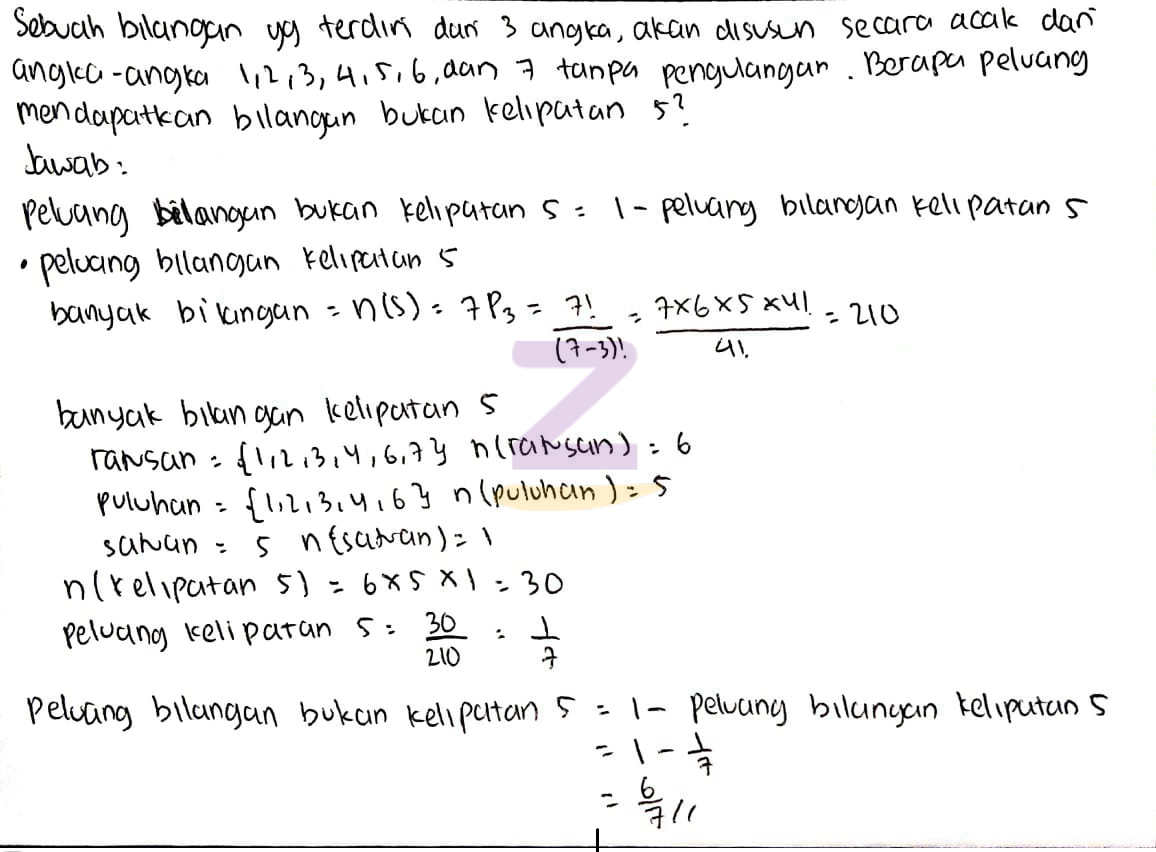 Sebuah bilangan yg terdiri dari 3 angka, akan disusun secara acak dari
angka-angka 1,2,3,4,5,6,dan 7 tanpa pengulangan. Berapa peluang
mendapatkan bilangan bukan kelipatan 5?
Jawab:
Peluang bilangan bukan kelipatan 5 = 1 - peluang bilangan kelipatan 5
• peluang bilangan kelipatan 5
banyak bilangan = n(S) = 7P₃ = 7!/(7-3)! = 7×6×5×4!/4! = 210
banyak bilangan kelipatan 5
ratusan = {1,2,3,4,6,7} n(ratusan) = 6
puluhan = {1,2,3,4,6} n(puluhan) = 5
satuan = 5 n(satuan) = 1
n(kelipatan 5) = 6×5×1 = 30
peluang kelipatan 5 = 30/210 = 1/7
Peluang bilangan bukan kelipatan 5 = 1 - Peluang bilangan kelipatan 5
= 1 - 1/7
= 6/7 //
Z